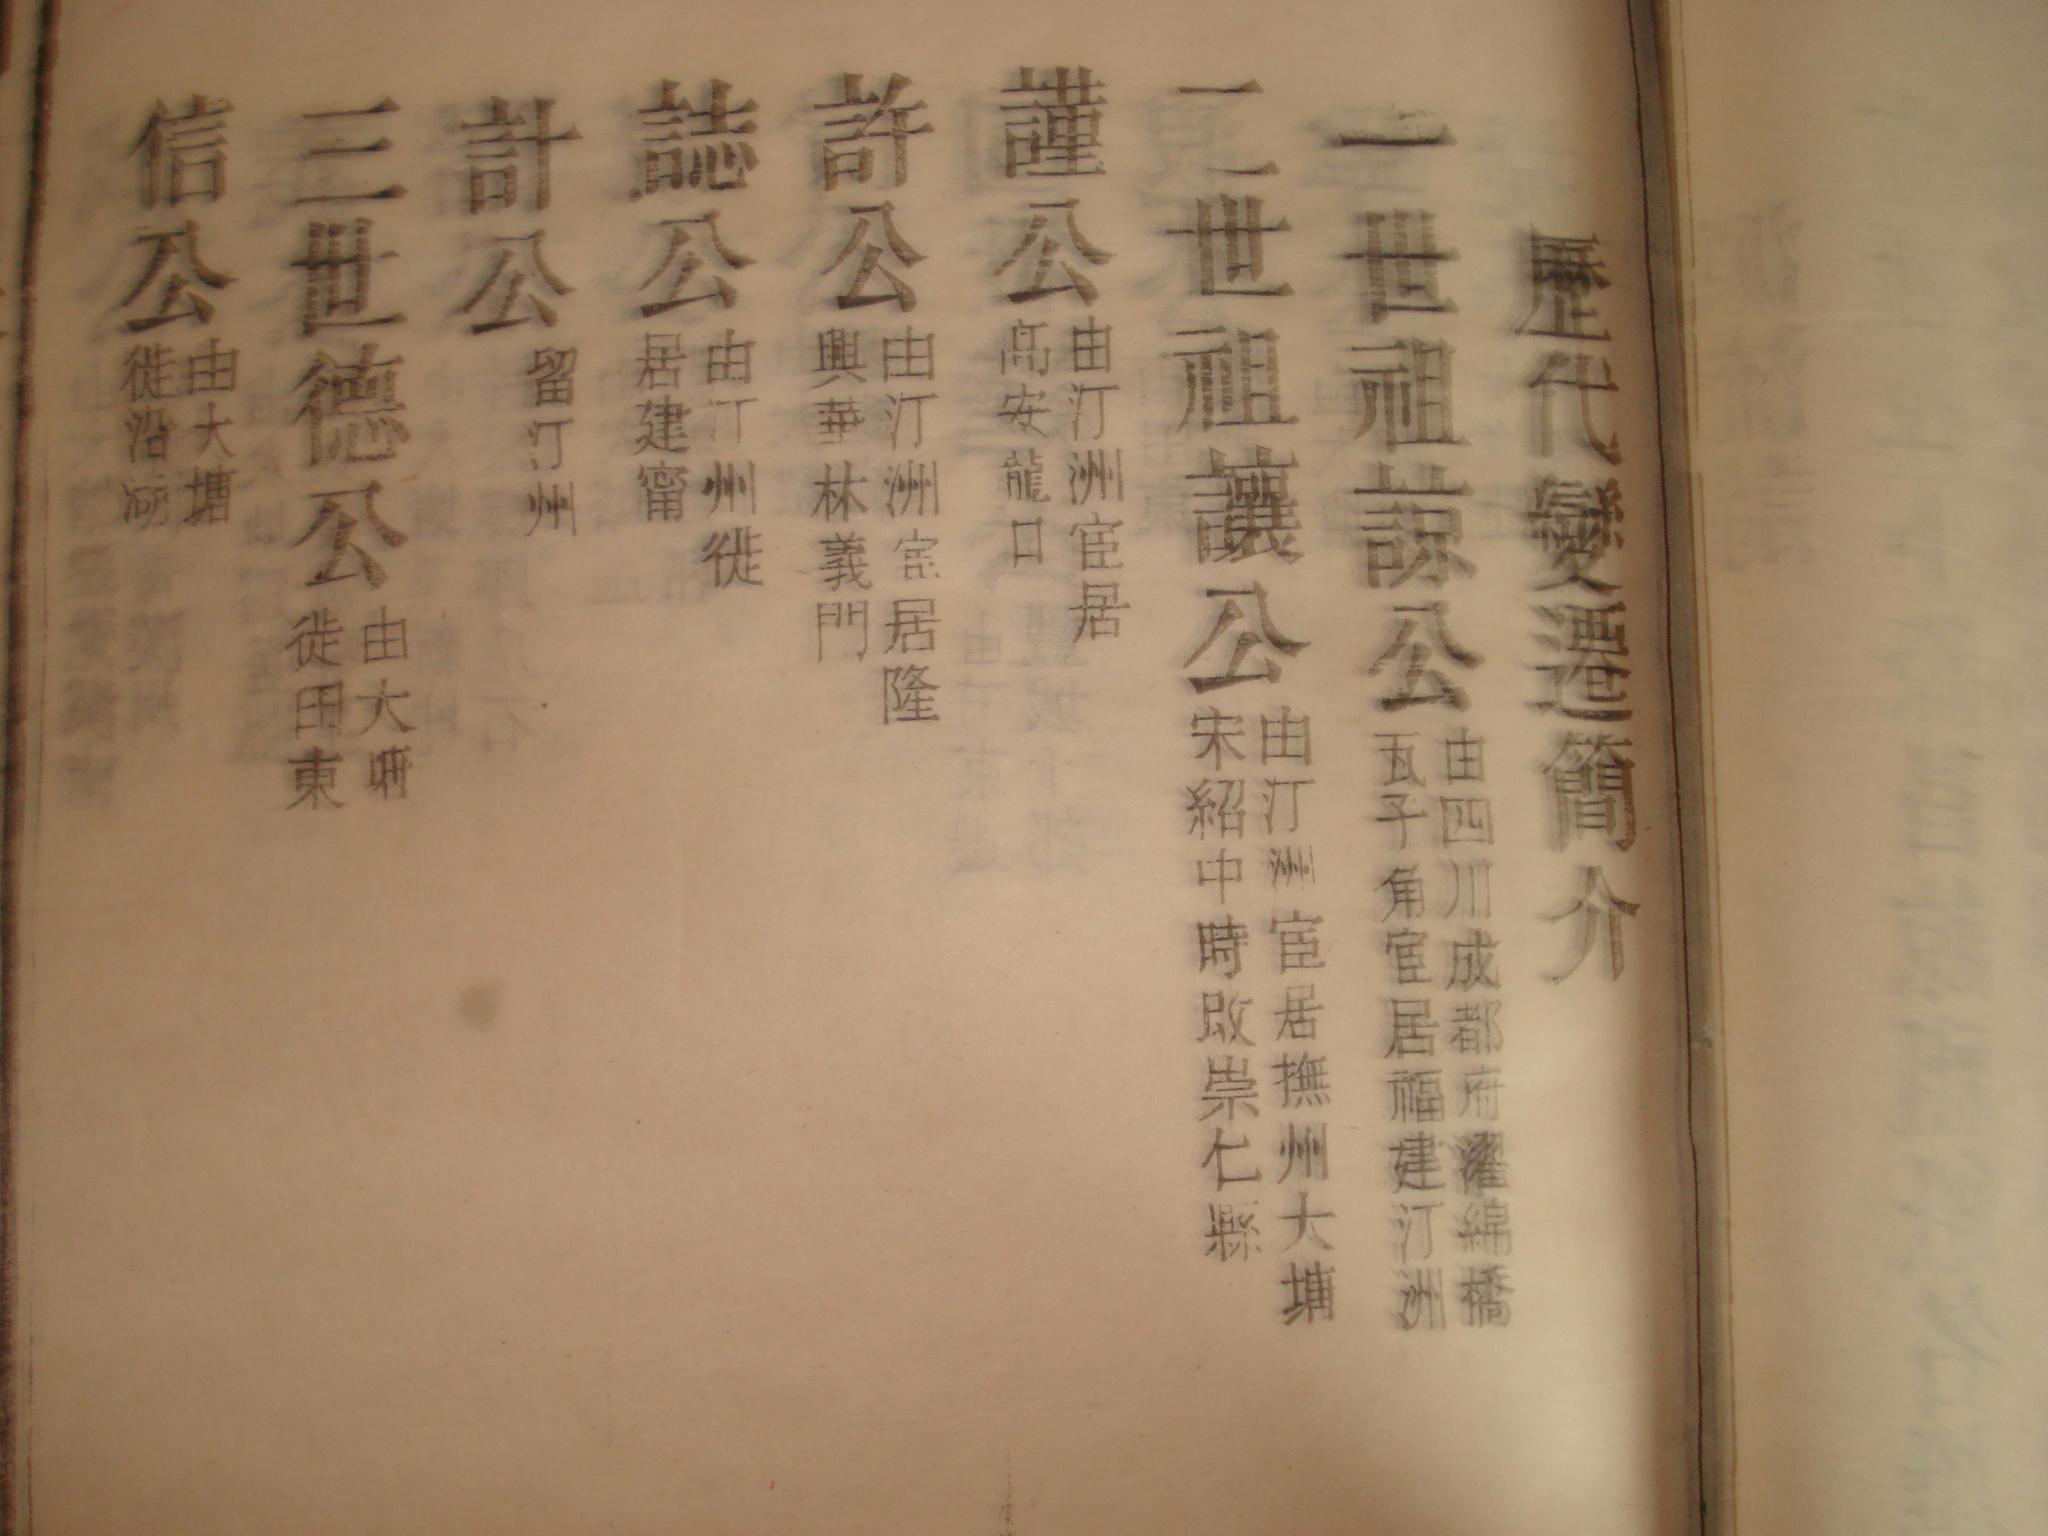 歷代變遷簡介
一世祖諒公
由四川成都府濯綿橋
瓦子角宦居福建汀洲
二世祖讓公
由汀洲宦居撫州大塘
宋紹中時改崇仁縣
謹公
由汀洲宦居
高安龍口
許公
由汀洲宦居隆
興華林義門
誌公
由汀州徙
居建甯
計公
留汀州
三世德公
由大塘
徙田東
信公
由大塘
徙沿湖